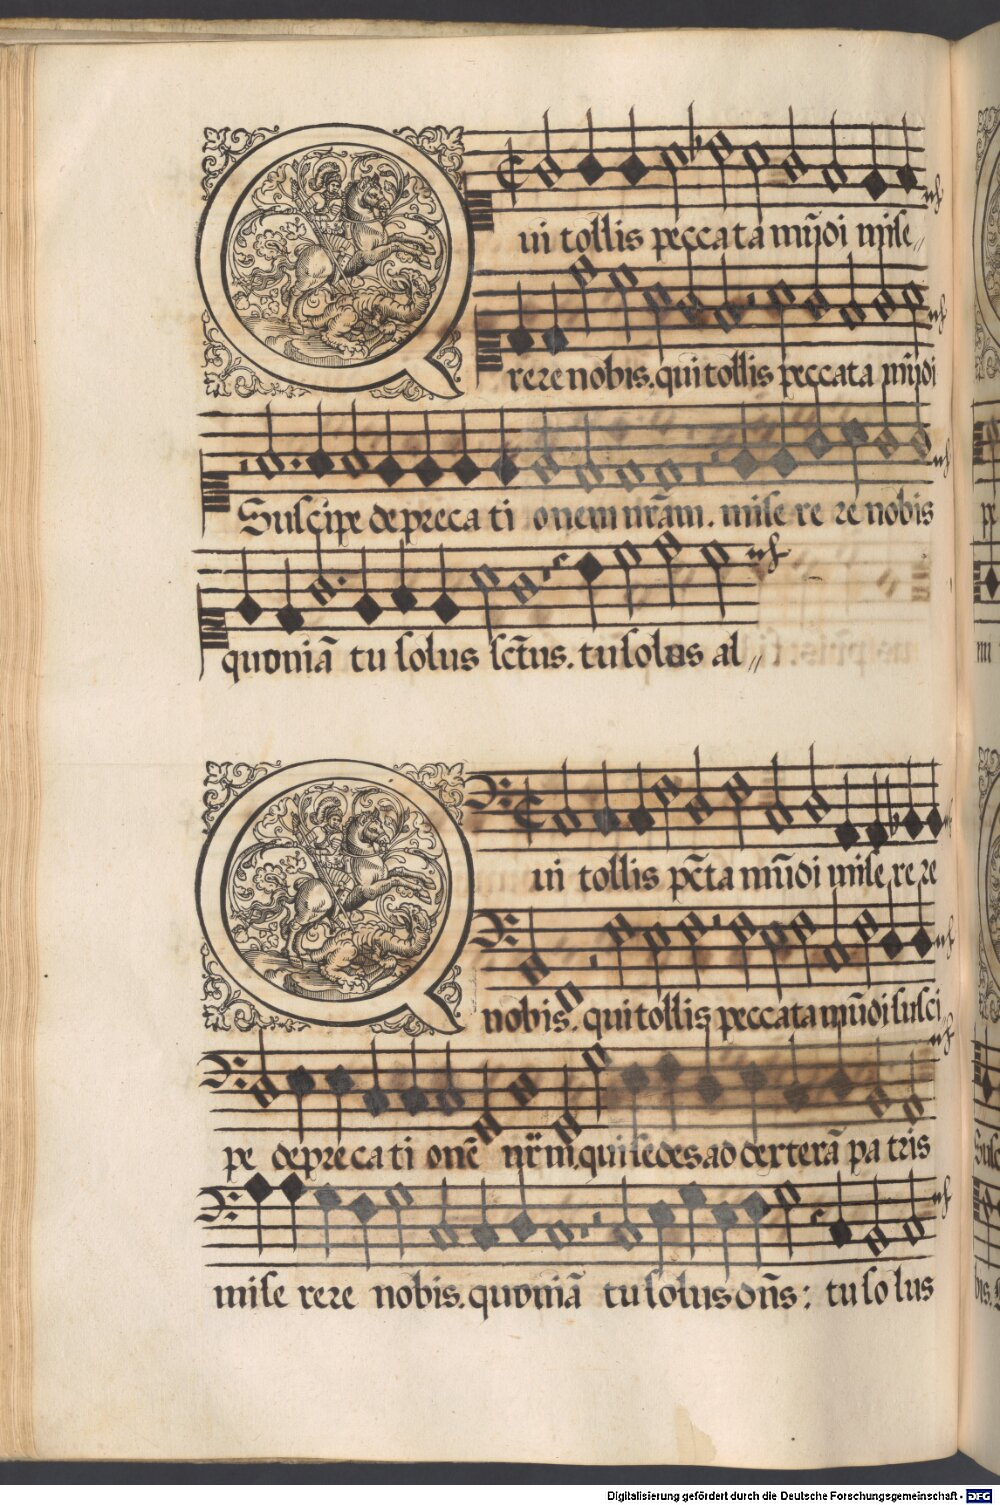 Qui tollis peccata mūdi mise〃
rere nobis. qui tollis peccata mūdi
Suscipe deprecati onem nrām. mise re re nobis
quoniā tu solus sctus. tu solus al〃
Qui tollis pcta mūdi mise re re
nobis. qui tollis peccata mūdi susci
pe deprecati onē nrm. qui sedes ad dexterā patris
mise rere nobis. quoniā tu solus dn̄s: tu so lus
Digitalisierung gefördert durch die Deutsche Forschungsgemeinschaft - DFG